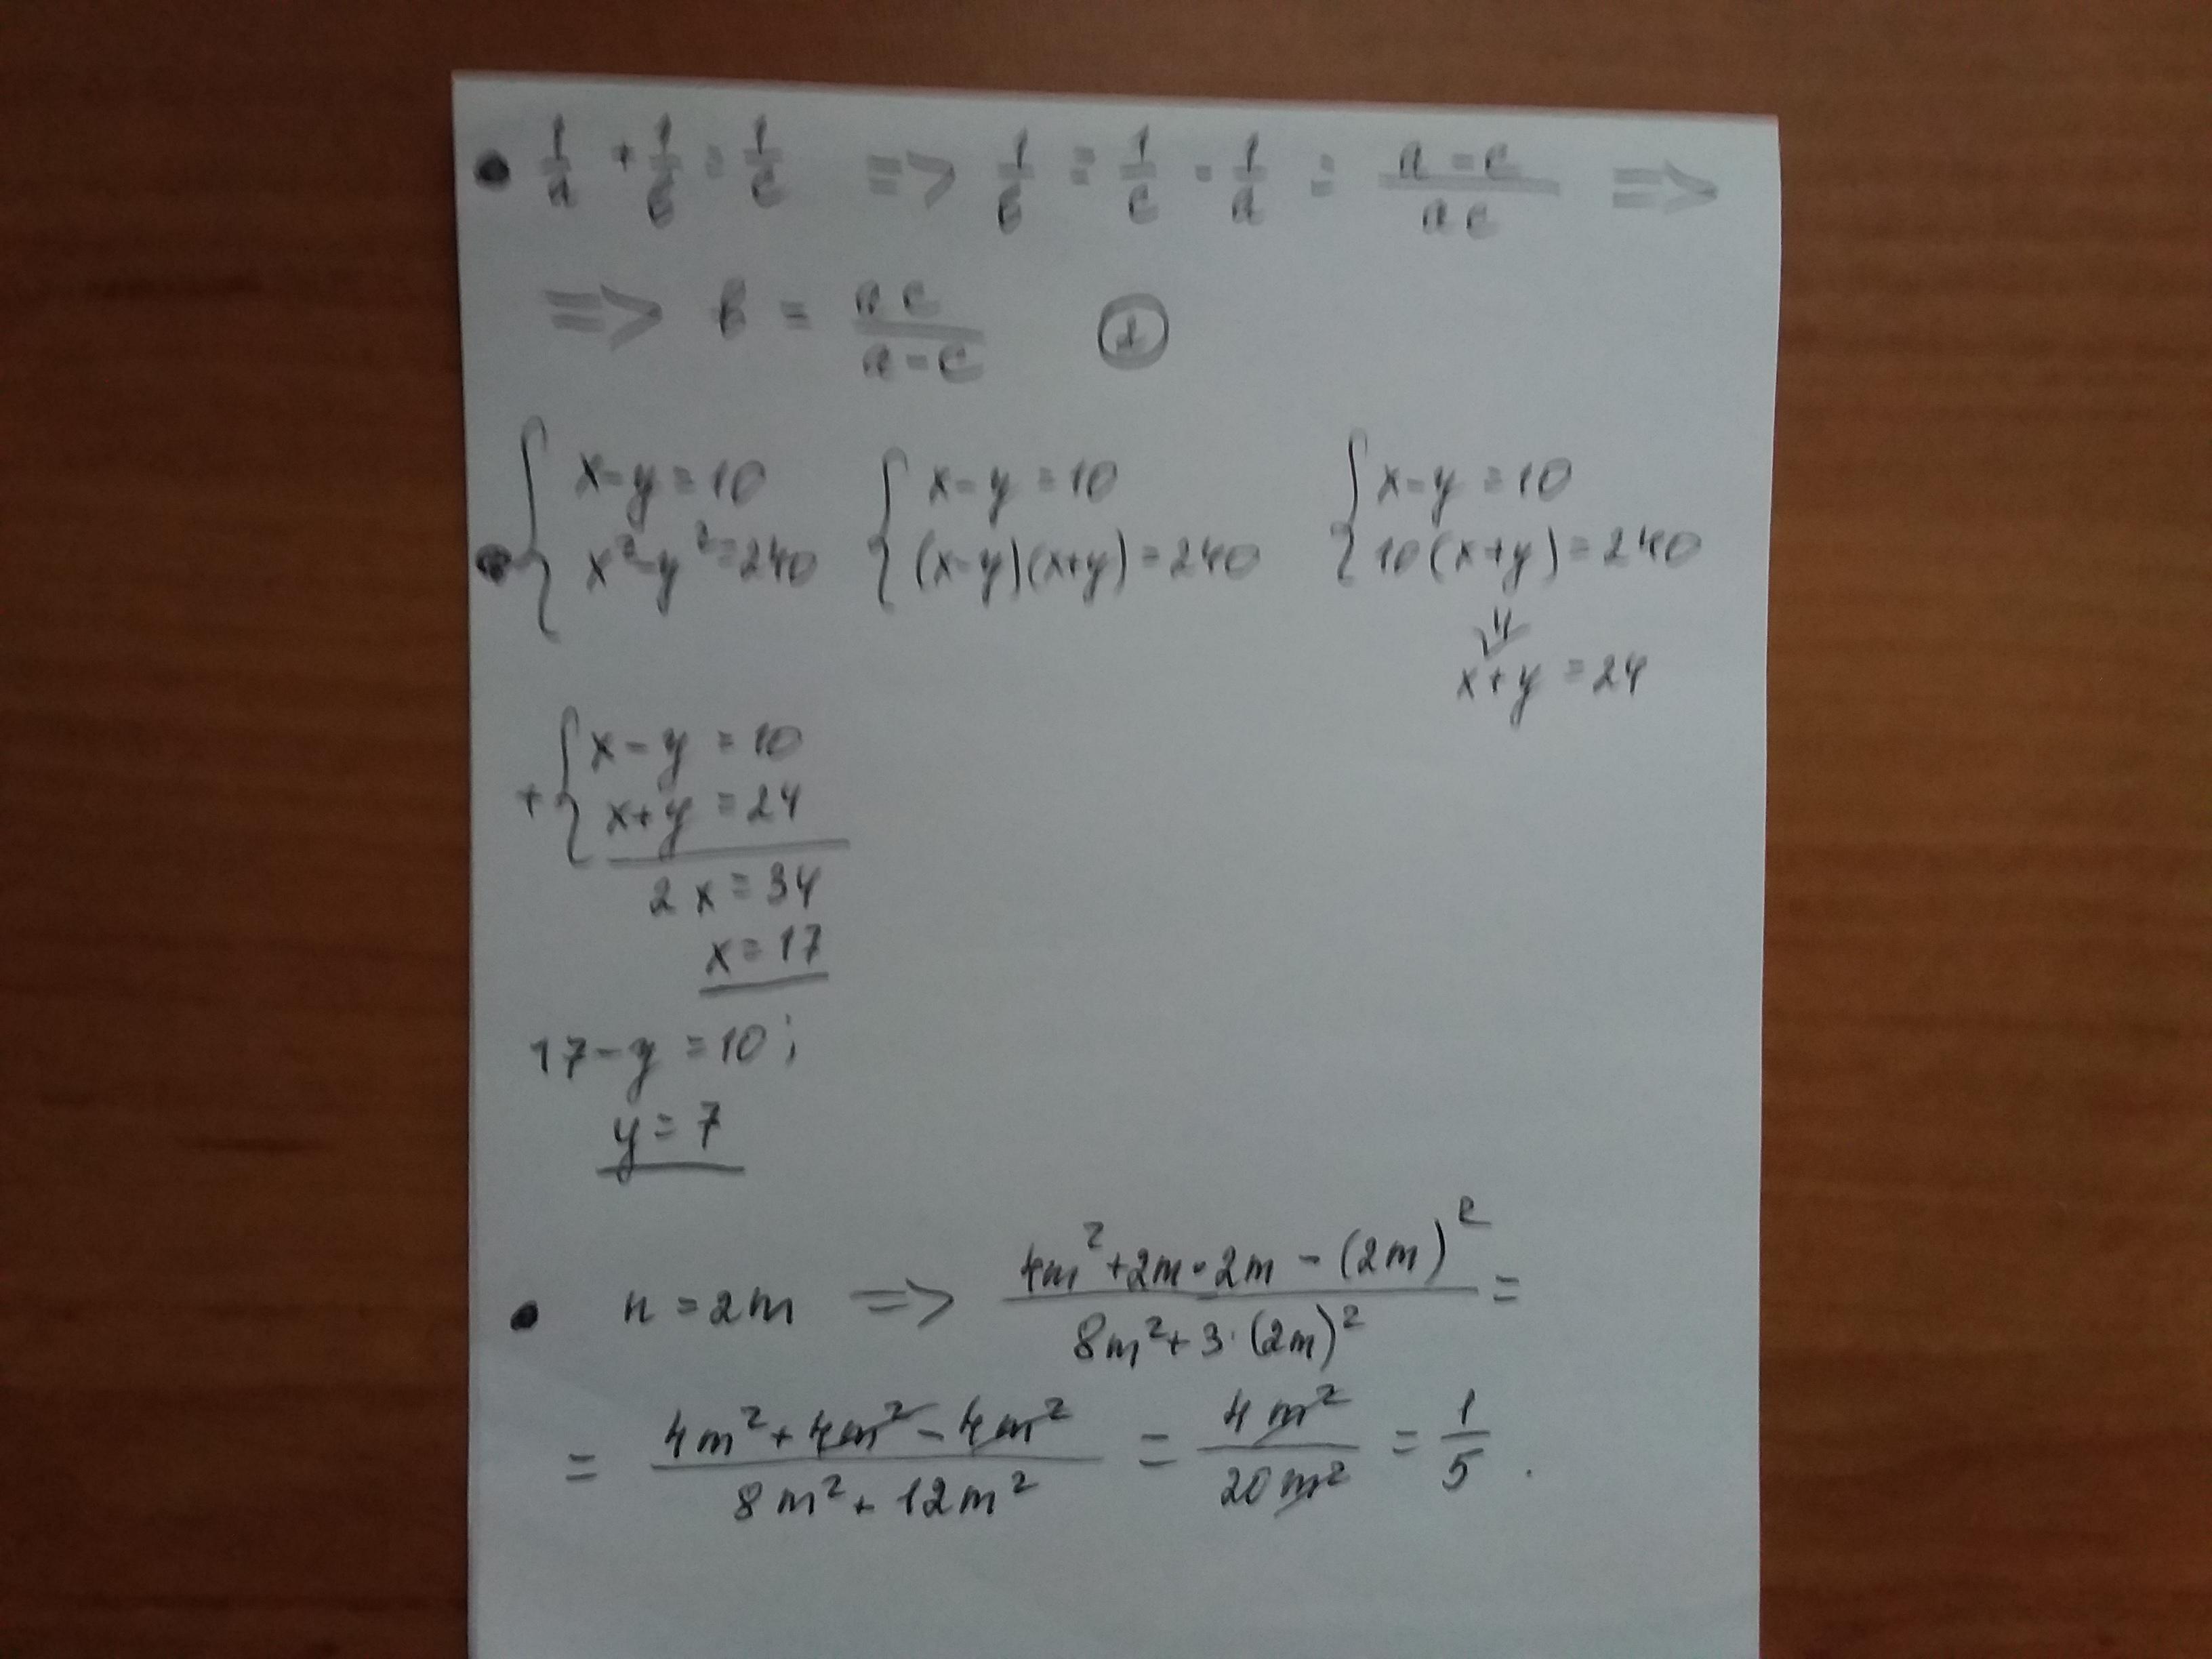 • 1/a + 1/b = 1/c => 1/b = 1/c - 1/a = (a - c)/(ac) =>
=> b = (ac)/(a - c) ①
• { x-y=10 { x-y=10 { x-y=10
x²-y²=240 (x-y)(x+y)=240 10(x+y)=240
⇓
x+y=24
+ { x-y=10
x+y=24
2x=34
x=17
17-y=10;
y=7
• n=2m => (4m²+2m·2m-(2m)²)/(8m²+3·(2m)²) =
= (4m²+4m²-4m²)/(8m²+12m²) = 4m²/20m² = 1/5.